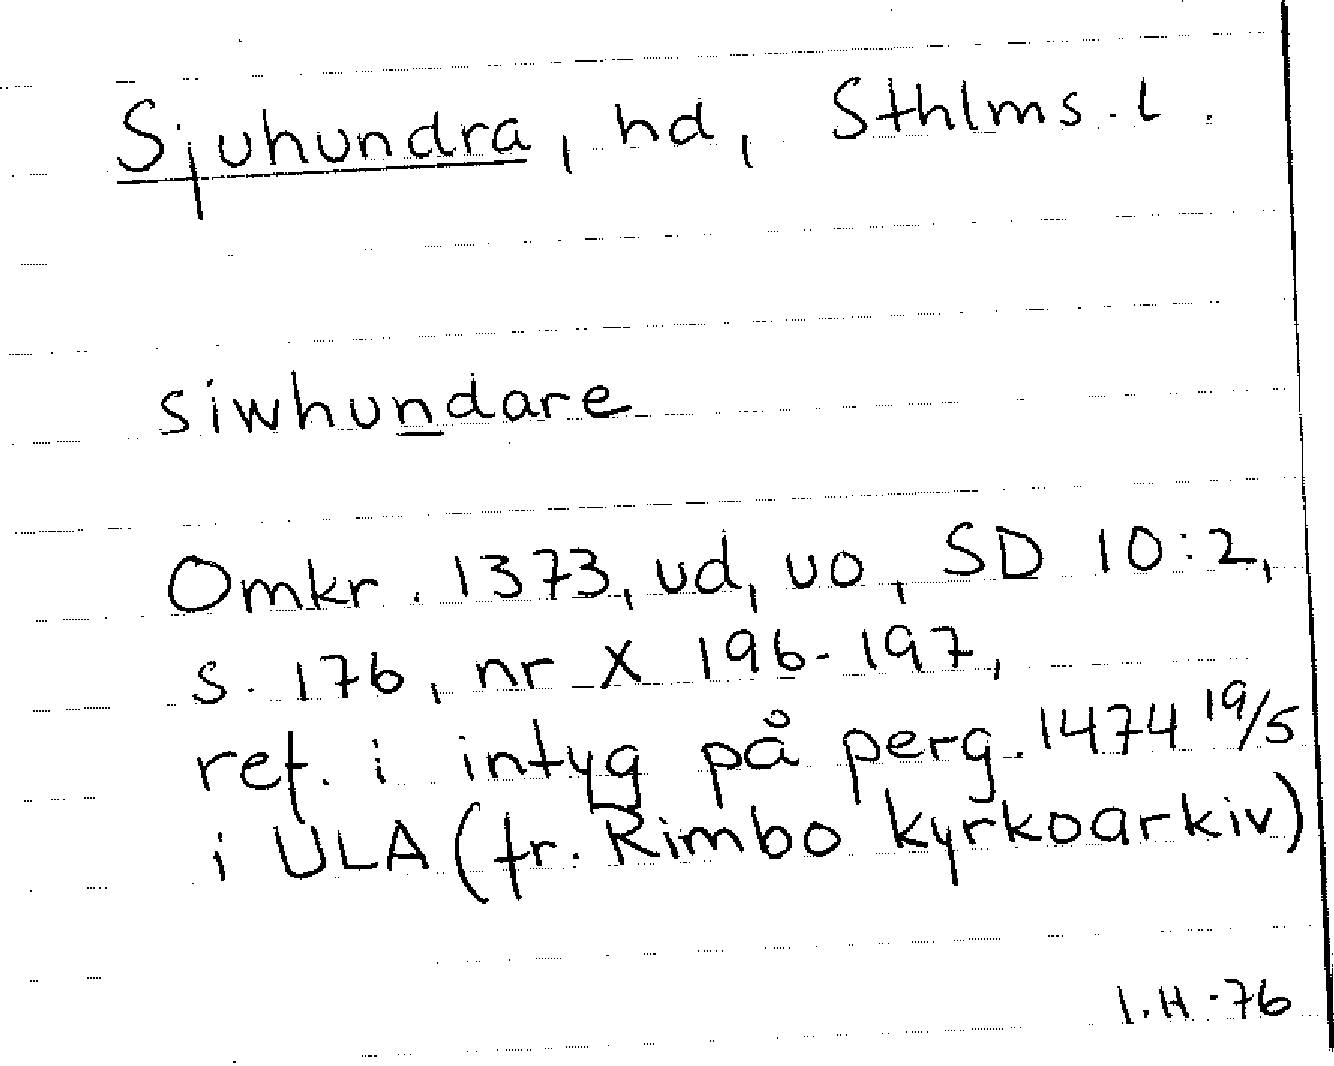 Sjuhundra, hd, Sthlms. l.
siwhundare
Omkr. 1373, ud, uo, SD 10:2,
s. 176, nr X 196-197,
ref. i intyg på perg. 1474 19/5
i ULA (fr. Rimbo kyrkoarkiv)
I.H -76